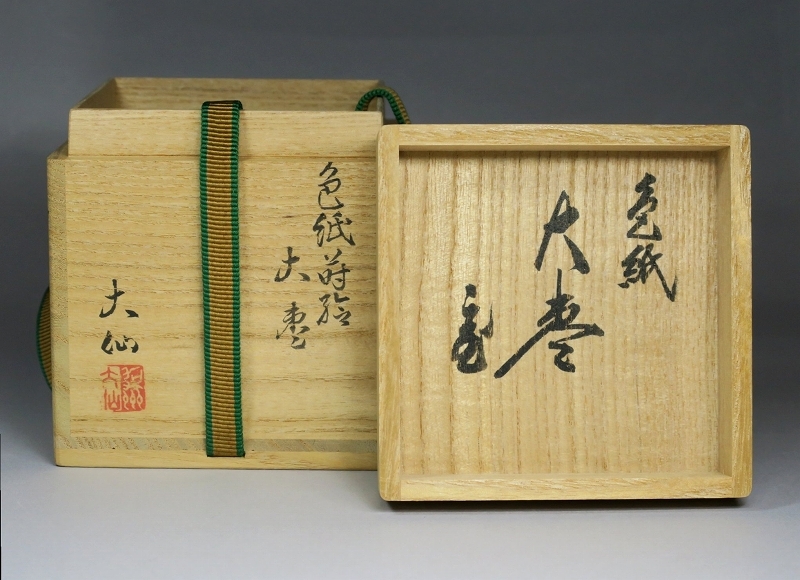 色紙蒔絵
大棗
大仙
大仙
色紙
大棗